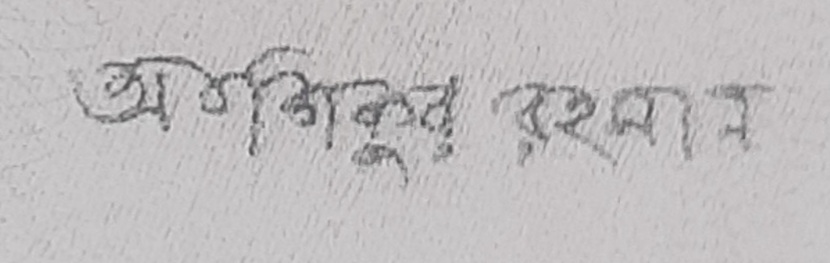 আশিকুর রহমান